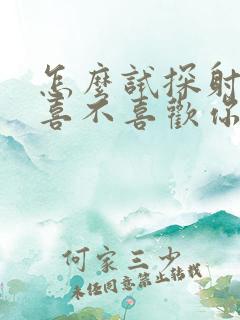 怎麼試探射
喜不喜歡你
何家三少
未经同意禁止转载